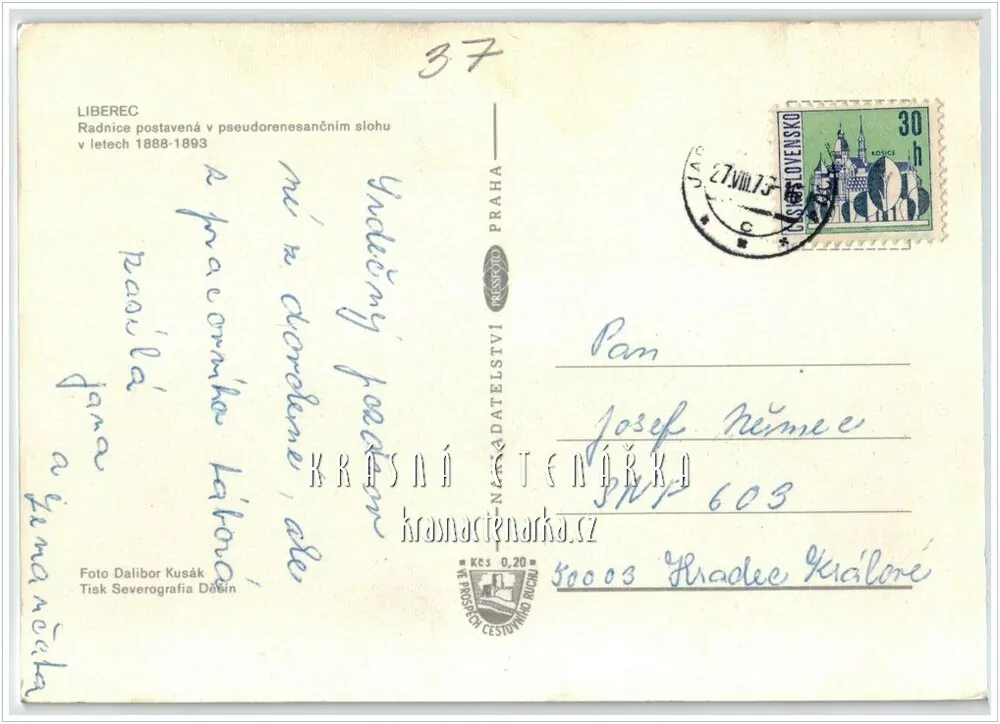 37
LIBEREC
Radnice postavená v pseudorenesančním slohu
v letech 1888-1893
Srdečný pozdrav
ní z dovolené, ale
z pracovního tábora
zasílá
Jana
a
Foto Dalibor Kusák
Tisk Severografia Děčín
NAKLADATELSTVÍ PRESSFOTO PRAHA
Kčs 0,20
VE PROSPĚCH CESTOVNÍHO RUCHU
ČESKOSLOVENSKO
30 h
KOŠICE
27.VIII.73
C
Pan
Josef Němec
SNP 603
50003 Hradec Králové
KRÁSNÁ ČTENÁŘKA
krasnactenarka.cz